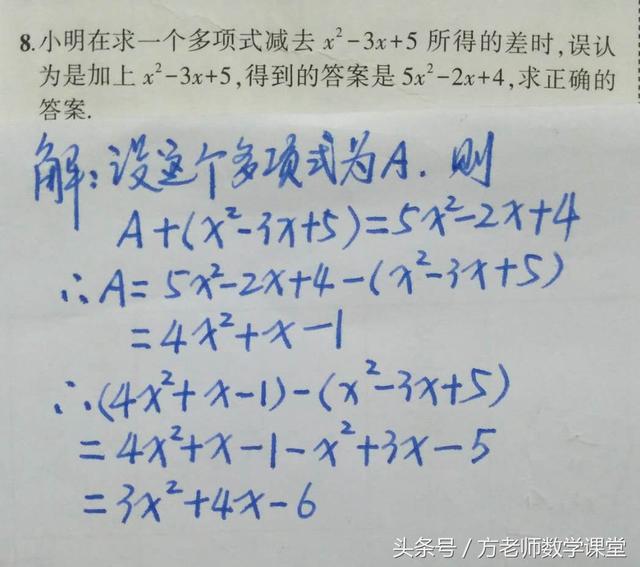 8.小明在求一个多项式减去 x²-3x+5 所得的差时,误认
为是加上 x²-3x+5,得到的答案是 5x²-2x+4,求正确的
答案.
解:设这个多项式为A.则
A+(x²-3x+5)=5x²-2x+4
∴A=5x²-2x+4-(x²-3x+5)
=4x²+x-1
∴(4x²+x-1)-(x²-3x+5)
=4x²+x-1-x²+3x-5
=3x²+4x-6
头条号 / 方老师数学课堂